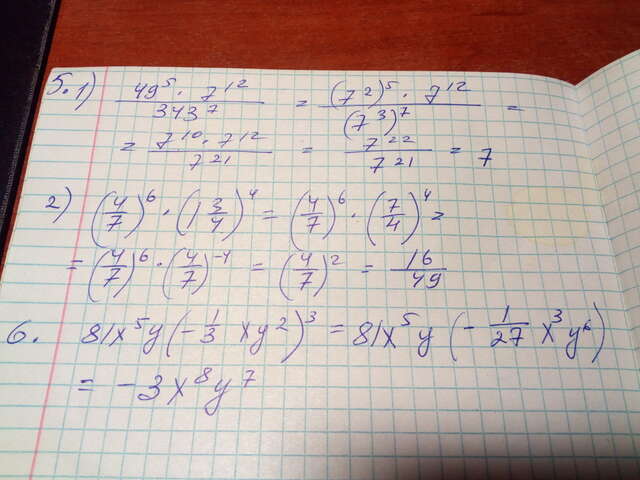 5. 1) 49⁵ · 7¹² / 343⁷ = (7²)⁵ · 7¹² / (7³)⁷ =
= 7¹⁰ · 7¹² / 7²¹ = 7²² / 7²¹ = 7
2) (4/7)⁶ · (1 3/4)⁴ = (4/7)⁶ · (7/4)⁴ =
= (4/7)⁶ · (4/7)⁻⁴ = (4/7)² = 16/49
6. 81x⁵y(-1/3 xy²)³ = 81x⁵y(-1/27 x³y⁶)
= -3x⁸y⁷